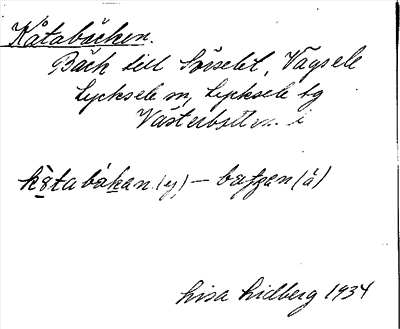 Kåtabäcken.
Bäck till Söselet, Vägsele
Lycksele sn, Lycksele tg
Västerbottens
kå̱tabäḵan (y) – batʒen (ä)
Lisa Lidberg 1934